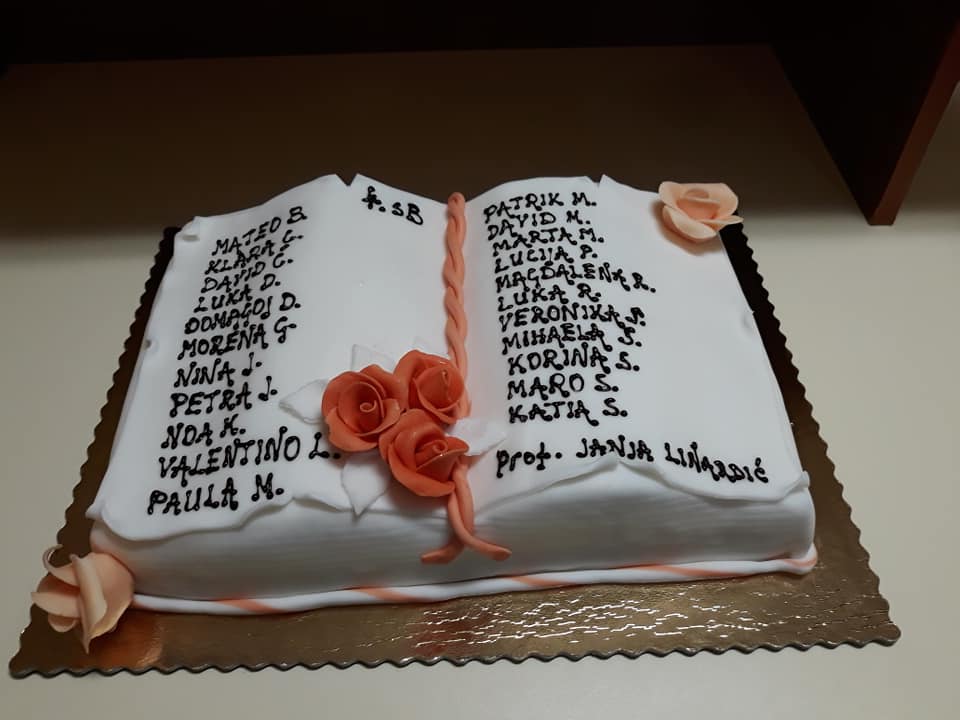 MATEO B.
KLARA Č.
DAVID Č.
LUKA D.
DOMAGOJ D.
MORENA G.
NINA J.
PETRA J.
NOA K.
VALENTINO L.
PAULA M.
4. sB
PATRIK M.
DAVID M.
MARTA M.
LUCIJA P.
MAGDALENA R.
LUKA R.
VERONIKA
MIHAELA S.
KORINA S.
MARO S.
KATJA S.
prof. JANJA LINARDIĆ